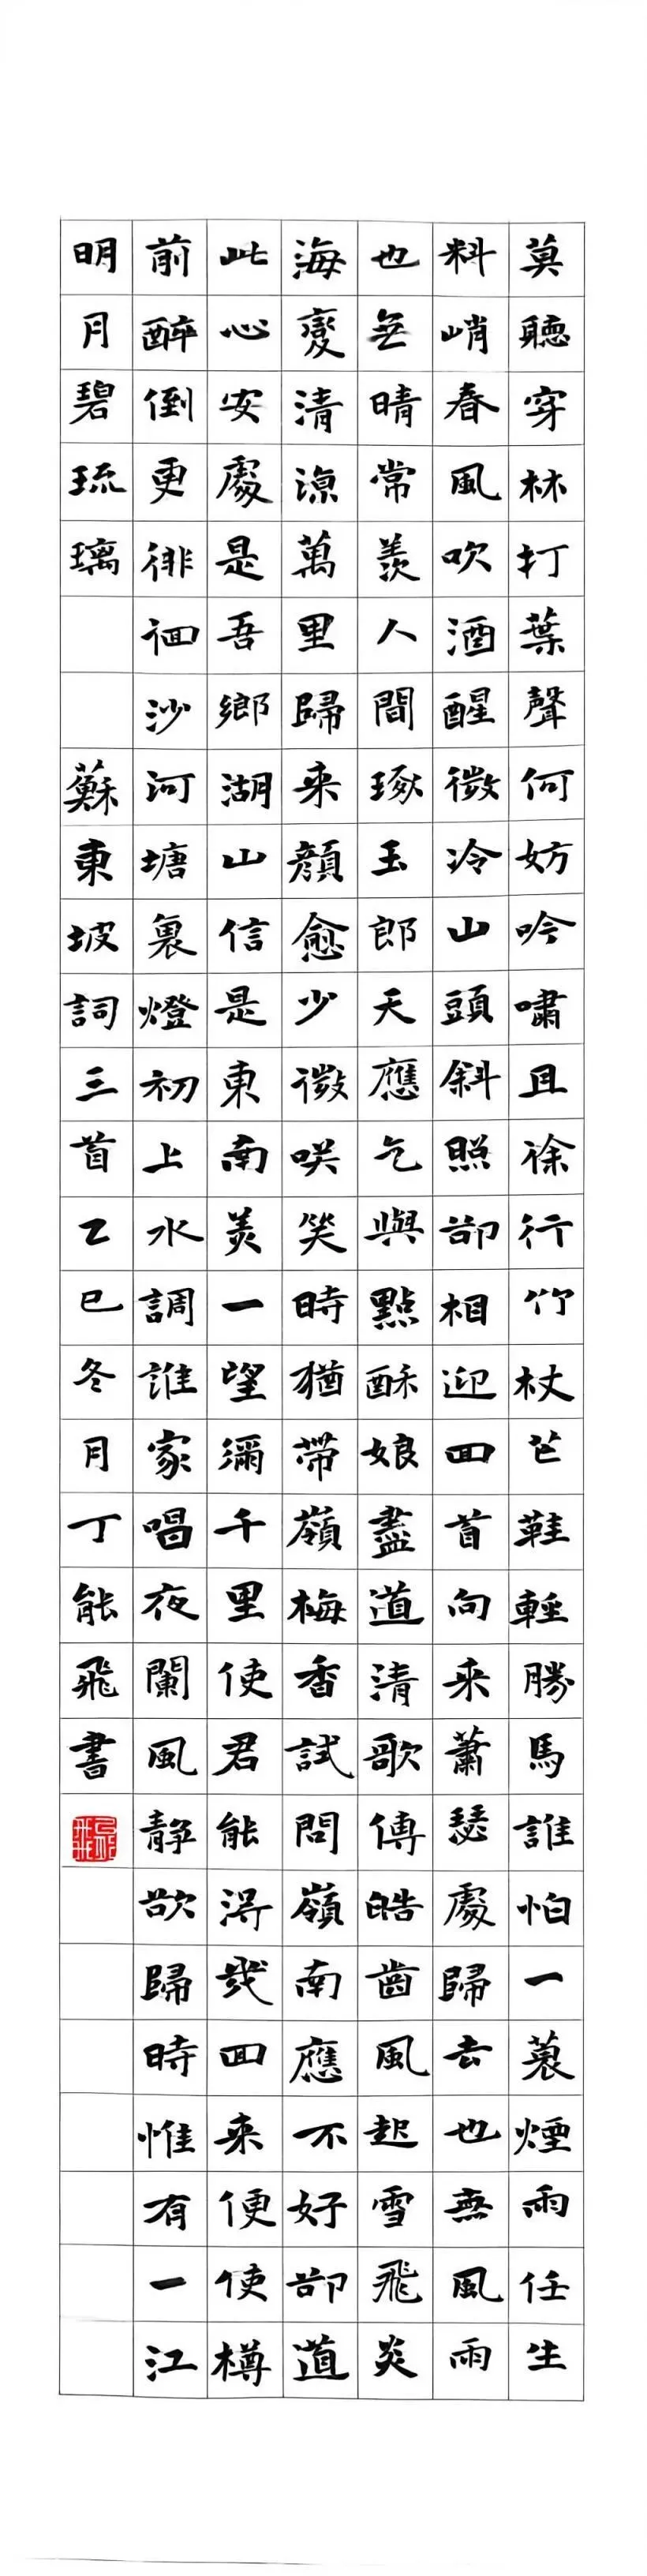 莫聽穿林打葉聲何妨吟嘯且徐行竹杖芒鞋輕勝馬誰怕一蓑煙雨任生
料峭春風吹酒醒微冷山頭斜照卻相迎回首向来蕭瑟處歸去也無風雨
也無晴常羨人間琢玉郎天應乞與點酥娘盡道清歌傳皓齒風起雪飛炎
海變清涼萬里歸来顏愈少微咲笑時猶帶嶺梅香試問嶺南應不好卻道
此心安處是吾鄉湖山信是東南美一望彌千里使君能得幾回来便使樽
前醉倒更徘徊沙河塘裏燈初上水調誰家唱夜闌風靜欲歸時惟有一江
明月碧琉璃 蘇東坡詞三首乙巳冬月丁能飛書